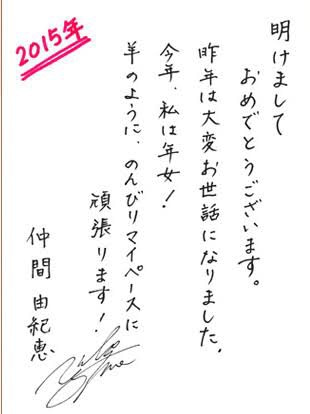 2015年
明けまして
おめでとうございます。
昨年は大変お世話になりました。
今年、私は年女！
羊のように、のんびりマイペースに
頑張ります！
仲間由紀恵